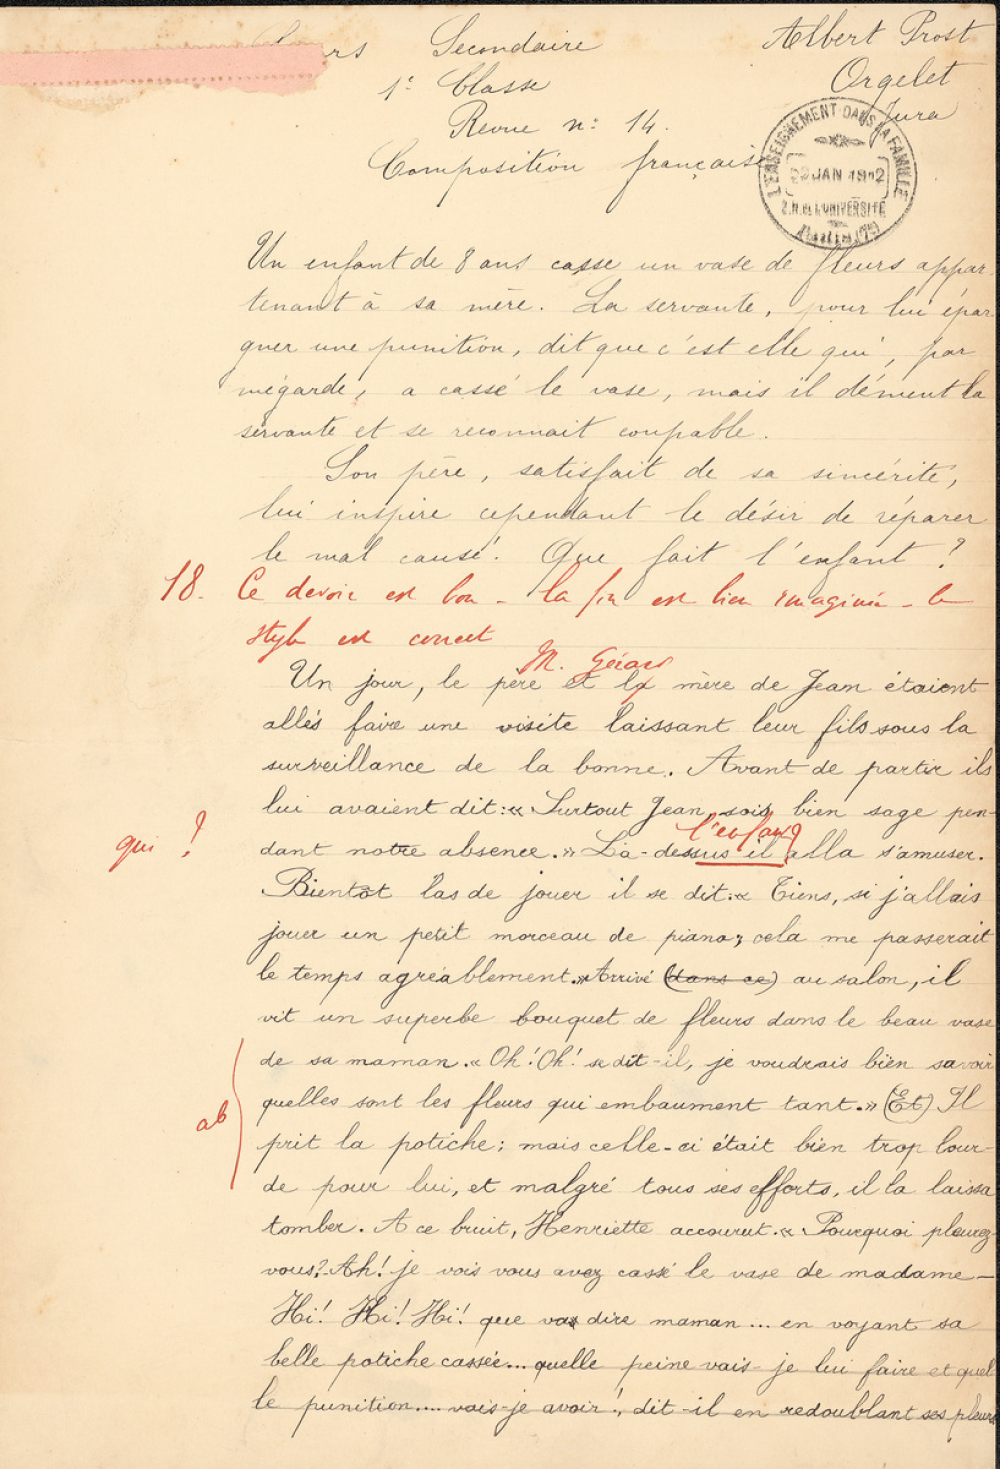 Cours Secondaire
Albert Prost
1e Classe
Orgelet
Revue n: 14.
Jura
Composition française
L'ENSEIGNEMENT DANS LA FAMILLE
22 JAN 1912
2.R. de L'UNIVERSITÉ
Un enfant de 8 ans casse un vase de fleurs appar
tenant à sa mère. La servante, pour lui épar
gner une punition, dit que c'est elle qui, par
mégarde, a cassé le vase, mais il dément la
servante et se reconnait coupable.
Son père, satisfait de sa sincérité,
lui inspire cependant le désir de réparer
le mal causé. Que fait l'enfant ?
18. Ce devoir est bon - la fin est bien imaginée - le
style est correct
M. Gérard
Un jour, le père et la mère de Jean étaient
allés faire une visite laissant leur fils sous la
surveillance de la bonne. Avant de partir ils
lui avaient dit: « Surtout Jean, sois bien sage pen-
l'enfant
qui ? dant notre absence. » Là-dessus il alla s'amuser.
Bientôt las de jouer il se dit: « Tiens, si j'allais
jouer un petit morceau de piano; cela me passerait
le temps agréablement. » Arrivé (dans ce) au salon, il
vit un superbe bouquet de fleurs dans le beau vase
de sa maman. « Oh! Oh! se dit-il, je voudrais bien savoir
quelles sont les fleurs qui embaument tant. » (Et) Il
ab prit la potiche; mais celle-ci était bien trop lour-
de pour lui, et malgré tous ses efforts, il la laissa
tomber. A ce bruit, Henriette accourut. « Pourquoi pleurez-
vous? Ah! je vois vous avez cassé le vase de madame —
Hi! Hi! Hi! que va dire maman ... en voyant sa
belle potiche cassée... quelle peine vais-je lui faire et quel
le punition.... vais-je avoir!, dit-il en redoublant ses pleurs